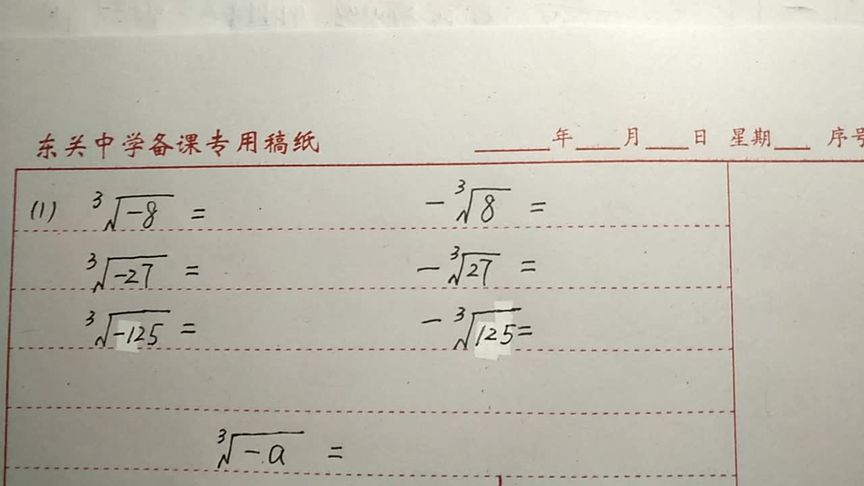 东关中学备课专用稿纸 ______年____月____日 星期____ 序号
(1) ∛-8 = -∛8 =
∛-27 = -∛27 =
∛-125 = -∛125=
∛-a =